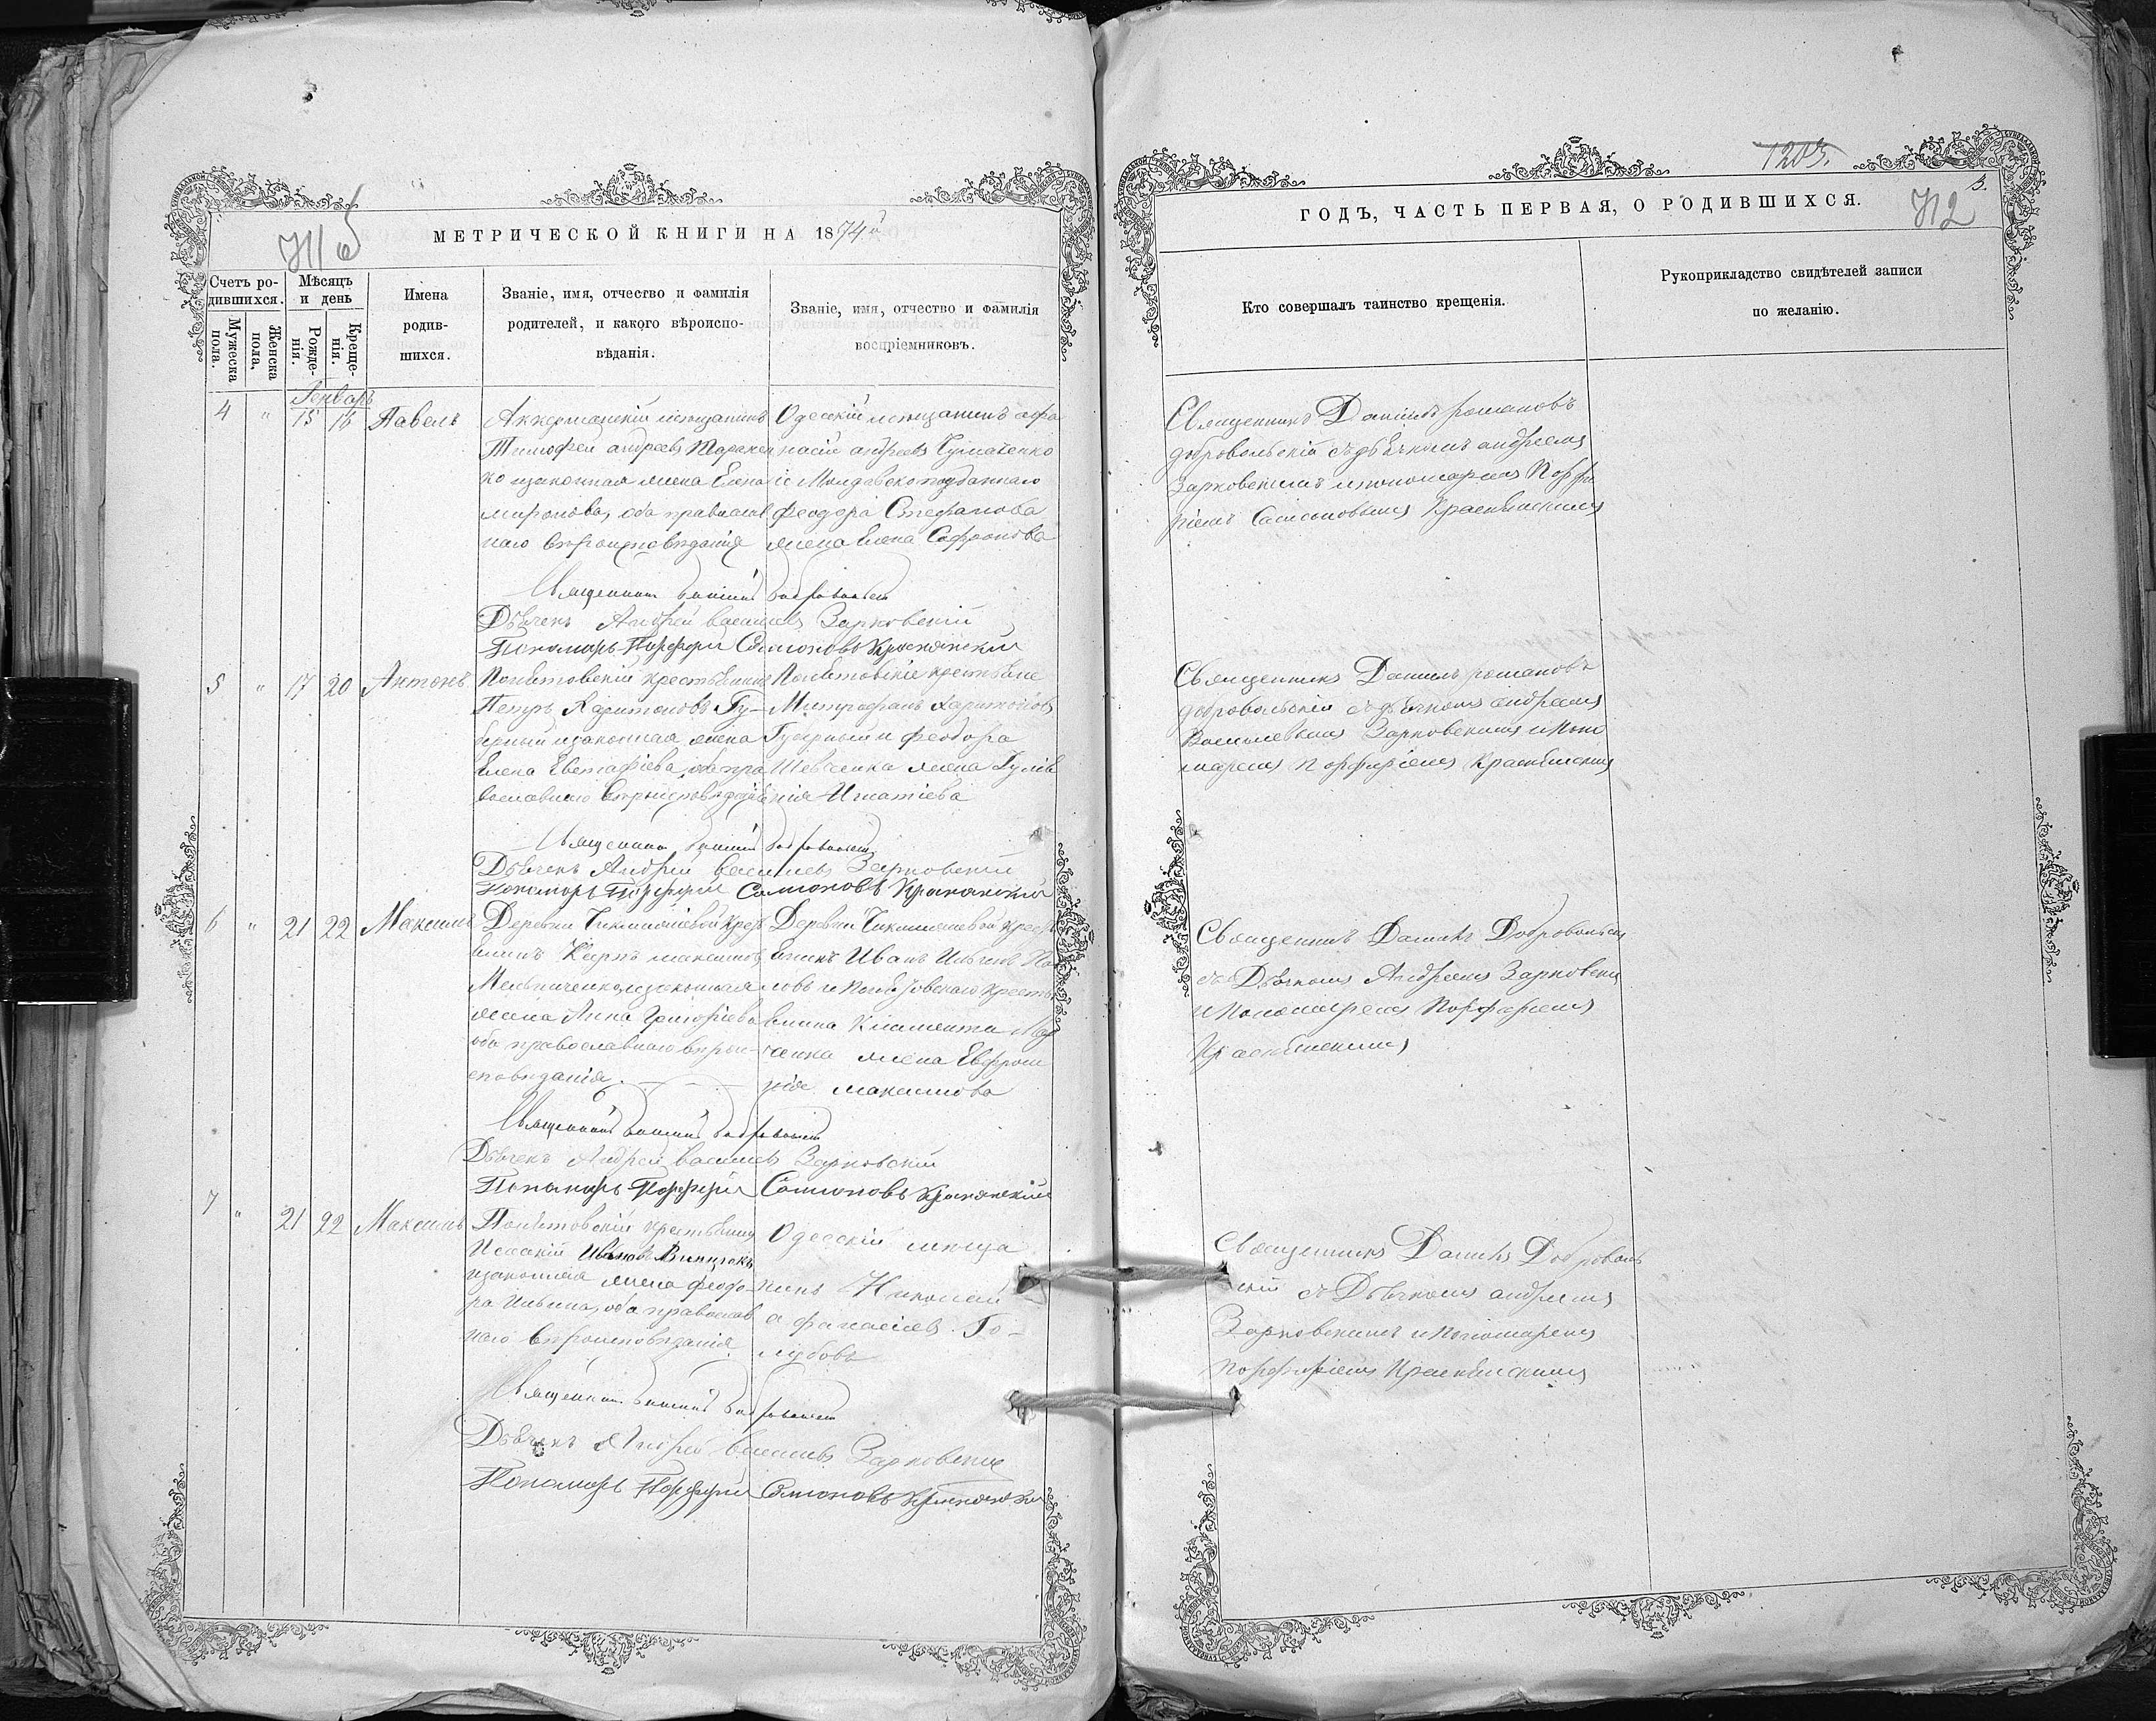 МЕТРИЧЕСКОЙ КНИГИ НА 1874й
Счетъ ро-
дившихся.
Мужеска
пола.
Женска
пола.
Мѣсяцъ
и день
Рожде-
нія.
Креще-
нія.
Имена
родив-
шихся.
Званіе, имя, отчество и фамилія
родителей, и какого вѣроиспо-
вѣданія.
Званіе, имя, отчество и фамилія
воспріемниковъ.
Генварь
4 " 15 16 Павелъ
Аккерманскій мѣщанинъ
Тимофей андреевъ
изаконная жена Елена
миронова, оба православ
наго вѣроисповѣданія
Одесскій мѣщанинъ афа
насій андреевъ
и Молдавскоподданнаго
феодора Стефанова
жена Елена Сафронова
Священникъ Даніилъ Добровольскій
Дьячекъ Андрей васильевъ Зарковскій
Пономарь Порфирій Самсоновъ Краснянскій
5 " 17 20 Антонъ
крестьянинъ
Петръ Харитоновъ Гу-
бѣрный изаконная жена
Елена Евстафіева, оба пра
вославнаго вѣроисповѣда
крестьяне
Митрофанъ Харитоновъ
Губѣрный и феодора
Шевченка жена Гулія
нія Игнатіева
Священникъ Даніилъ Добровольскій
Дьячекъ Андрей васильевъ Зарковскій
Пономарь Порфирій Самсоновъ Краснянскій
6 " 21 22 Максимъ
Деревни крест
янинъ Карпъ максимовъ
Мельниченко, изаконная
жена Анна Григоріева
оба православнаго вѣрои-
сповѣданія.
Деревни крест
янинъ Иванъ Ильинъ
ловъ и крестья
янина Климента
ченка жена Евфрои
нія максимова
Священникъ Даніилъ Добровольскій
Дьячекъ Андрей васильевъ Зарковскій
Пономарь Порфирій Самсоновъ Краснянскій
7 " 21 22 Максимъ
крестьянинъ
Ивановъ
изаконная жена феодо-
ра Ильина, оба православ
наго вѣроисповѣданія
Одесскій мѣща
нинъ Николай
афанасіевъ Го-
лубовъ
Священникъ Даніилъ Добровольскій
Дьячекъ Андрей васильевъ Зарковскій
Пономарь Порфирій Самсоновъ Краснянскій
1203.
3.
712
ГОДЪ, ЧАСТЬ ПЕРВАЯ, О РОДИВШИХСЯ.
Кто совершалъ таинство крещенія.
Рукоприкладство свидѣтелей записи
по желанію.
Священникъ Даніилъ романовъ
добровольскій съдьячкомъ андреемъ
Зарковскимъ ипономаремъ Порфи
ріемъ Самсоновымъ Краснянскимъ
Священникъ Даніилъ романовъ
добровольскій съдьячкомъ андреемъ
Васильевымъ Зарковскимъ ипоно
маремъ порфиріемъ Краснянскимъ
Священникъ Даніилъ Добровольскій
съ Дьячкомъ Андреемъ Зарковским
и Пономаремъ Порфиріемъ
Краснянскимъ
Священникъ Даніилъ Доброволь
скій съ Дьячкомъ андреемъ
Зарковскимъ иПономаремъ
порфиріемъ Краснянскимъ